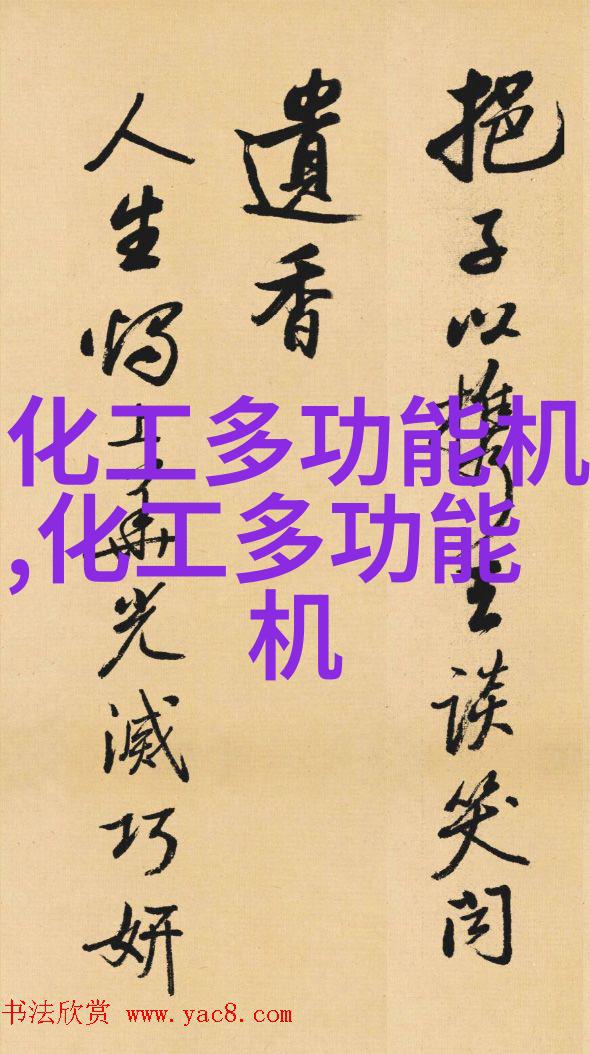 挹子以談笑
遺香
人生光滅巧妍
化工多功能机
,化工多功能
机
书法欣赏 www.yac8.com